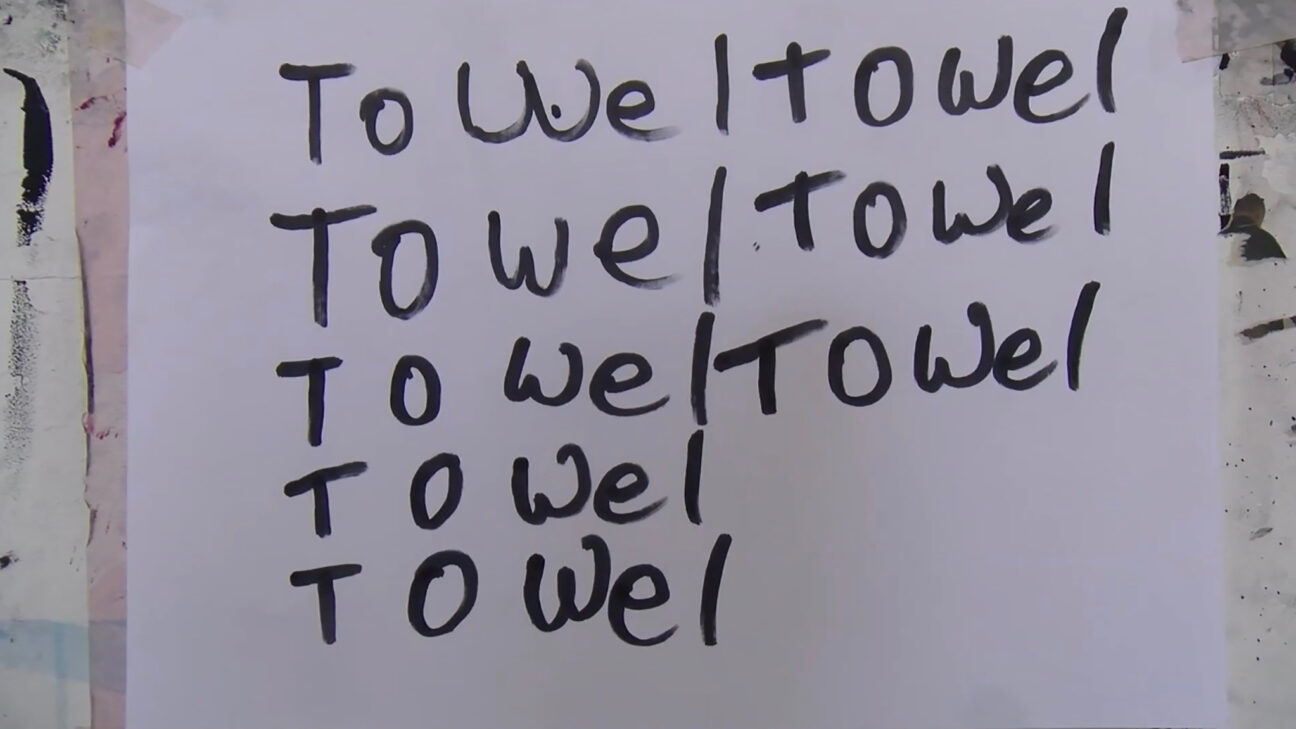 Towel towel
Towel Towel
Towel Towel
Towel
Towel